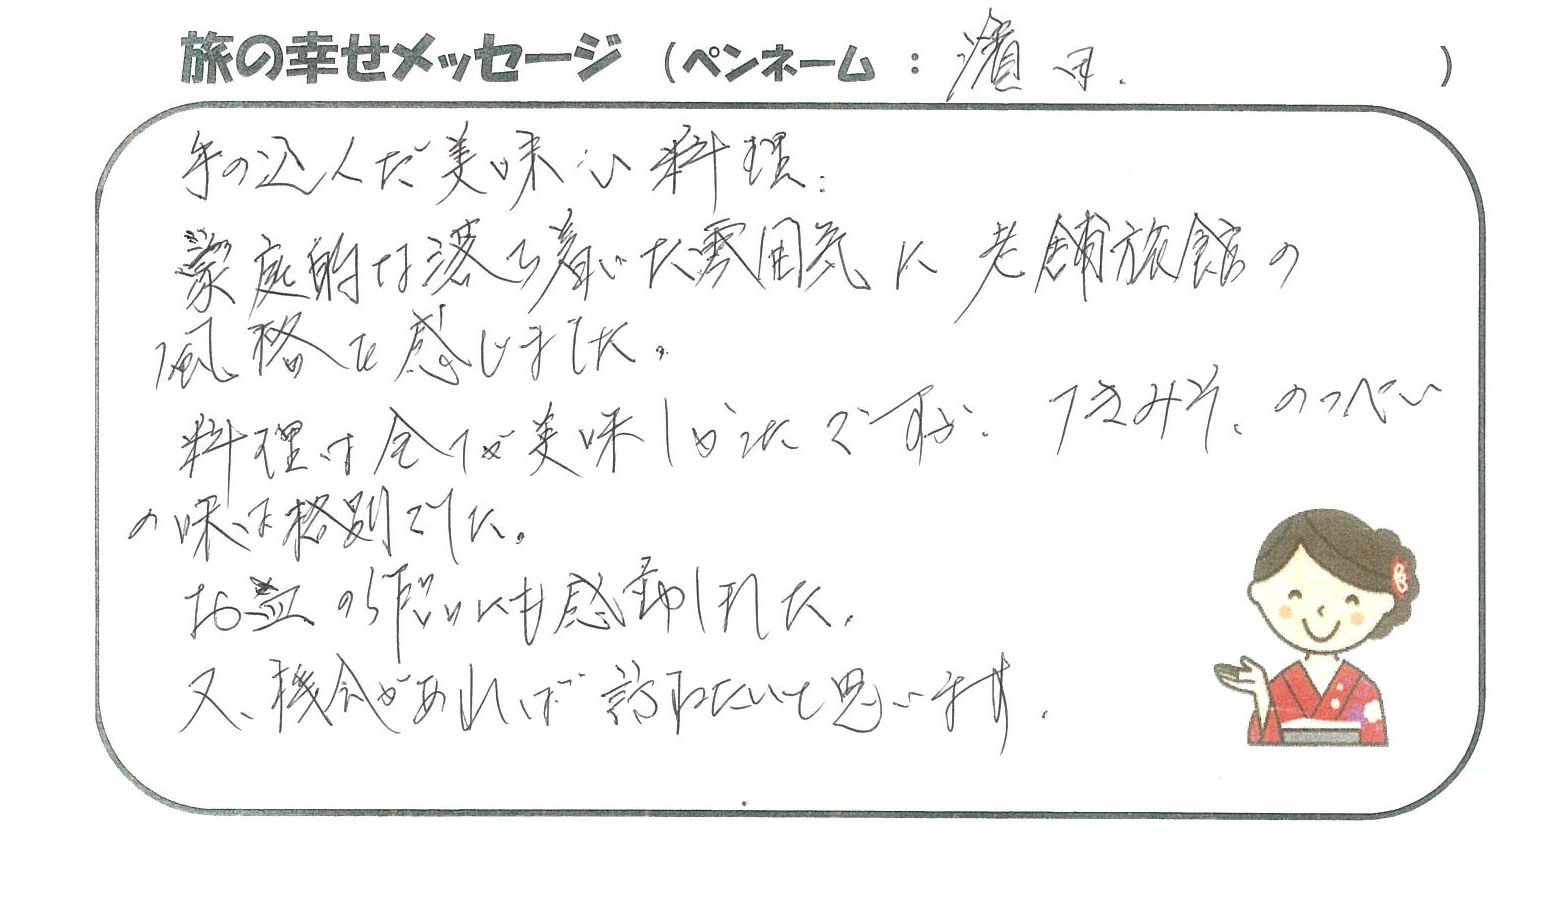 旅の幸せメッセージ (ペンネーム : 濱田.)
手の込んだ美味い料理.
家庭的な落ち着いた雰囲気に老舗旅館の
風格を感じました。
料理は全てが美味しかったですが、つきみそ、のっぺい
の味は格別でした。
お皿の らいにも感動しました.
又、機会があれば訪ねたいと思います.